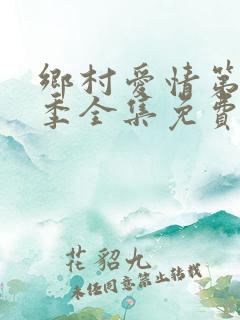 鄉村愛情第
季全集免費
花貂九
未经同意禁止转载